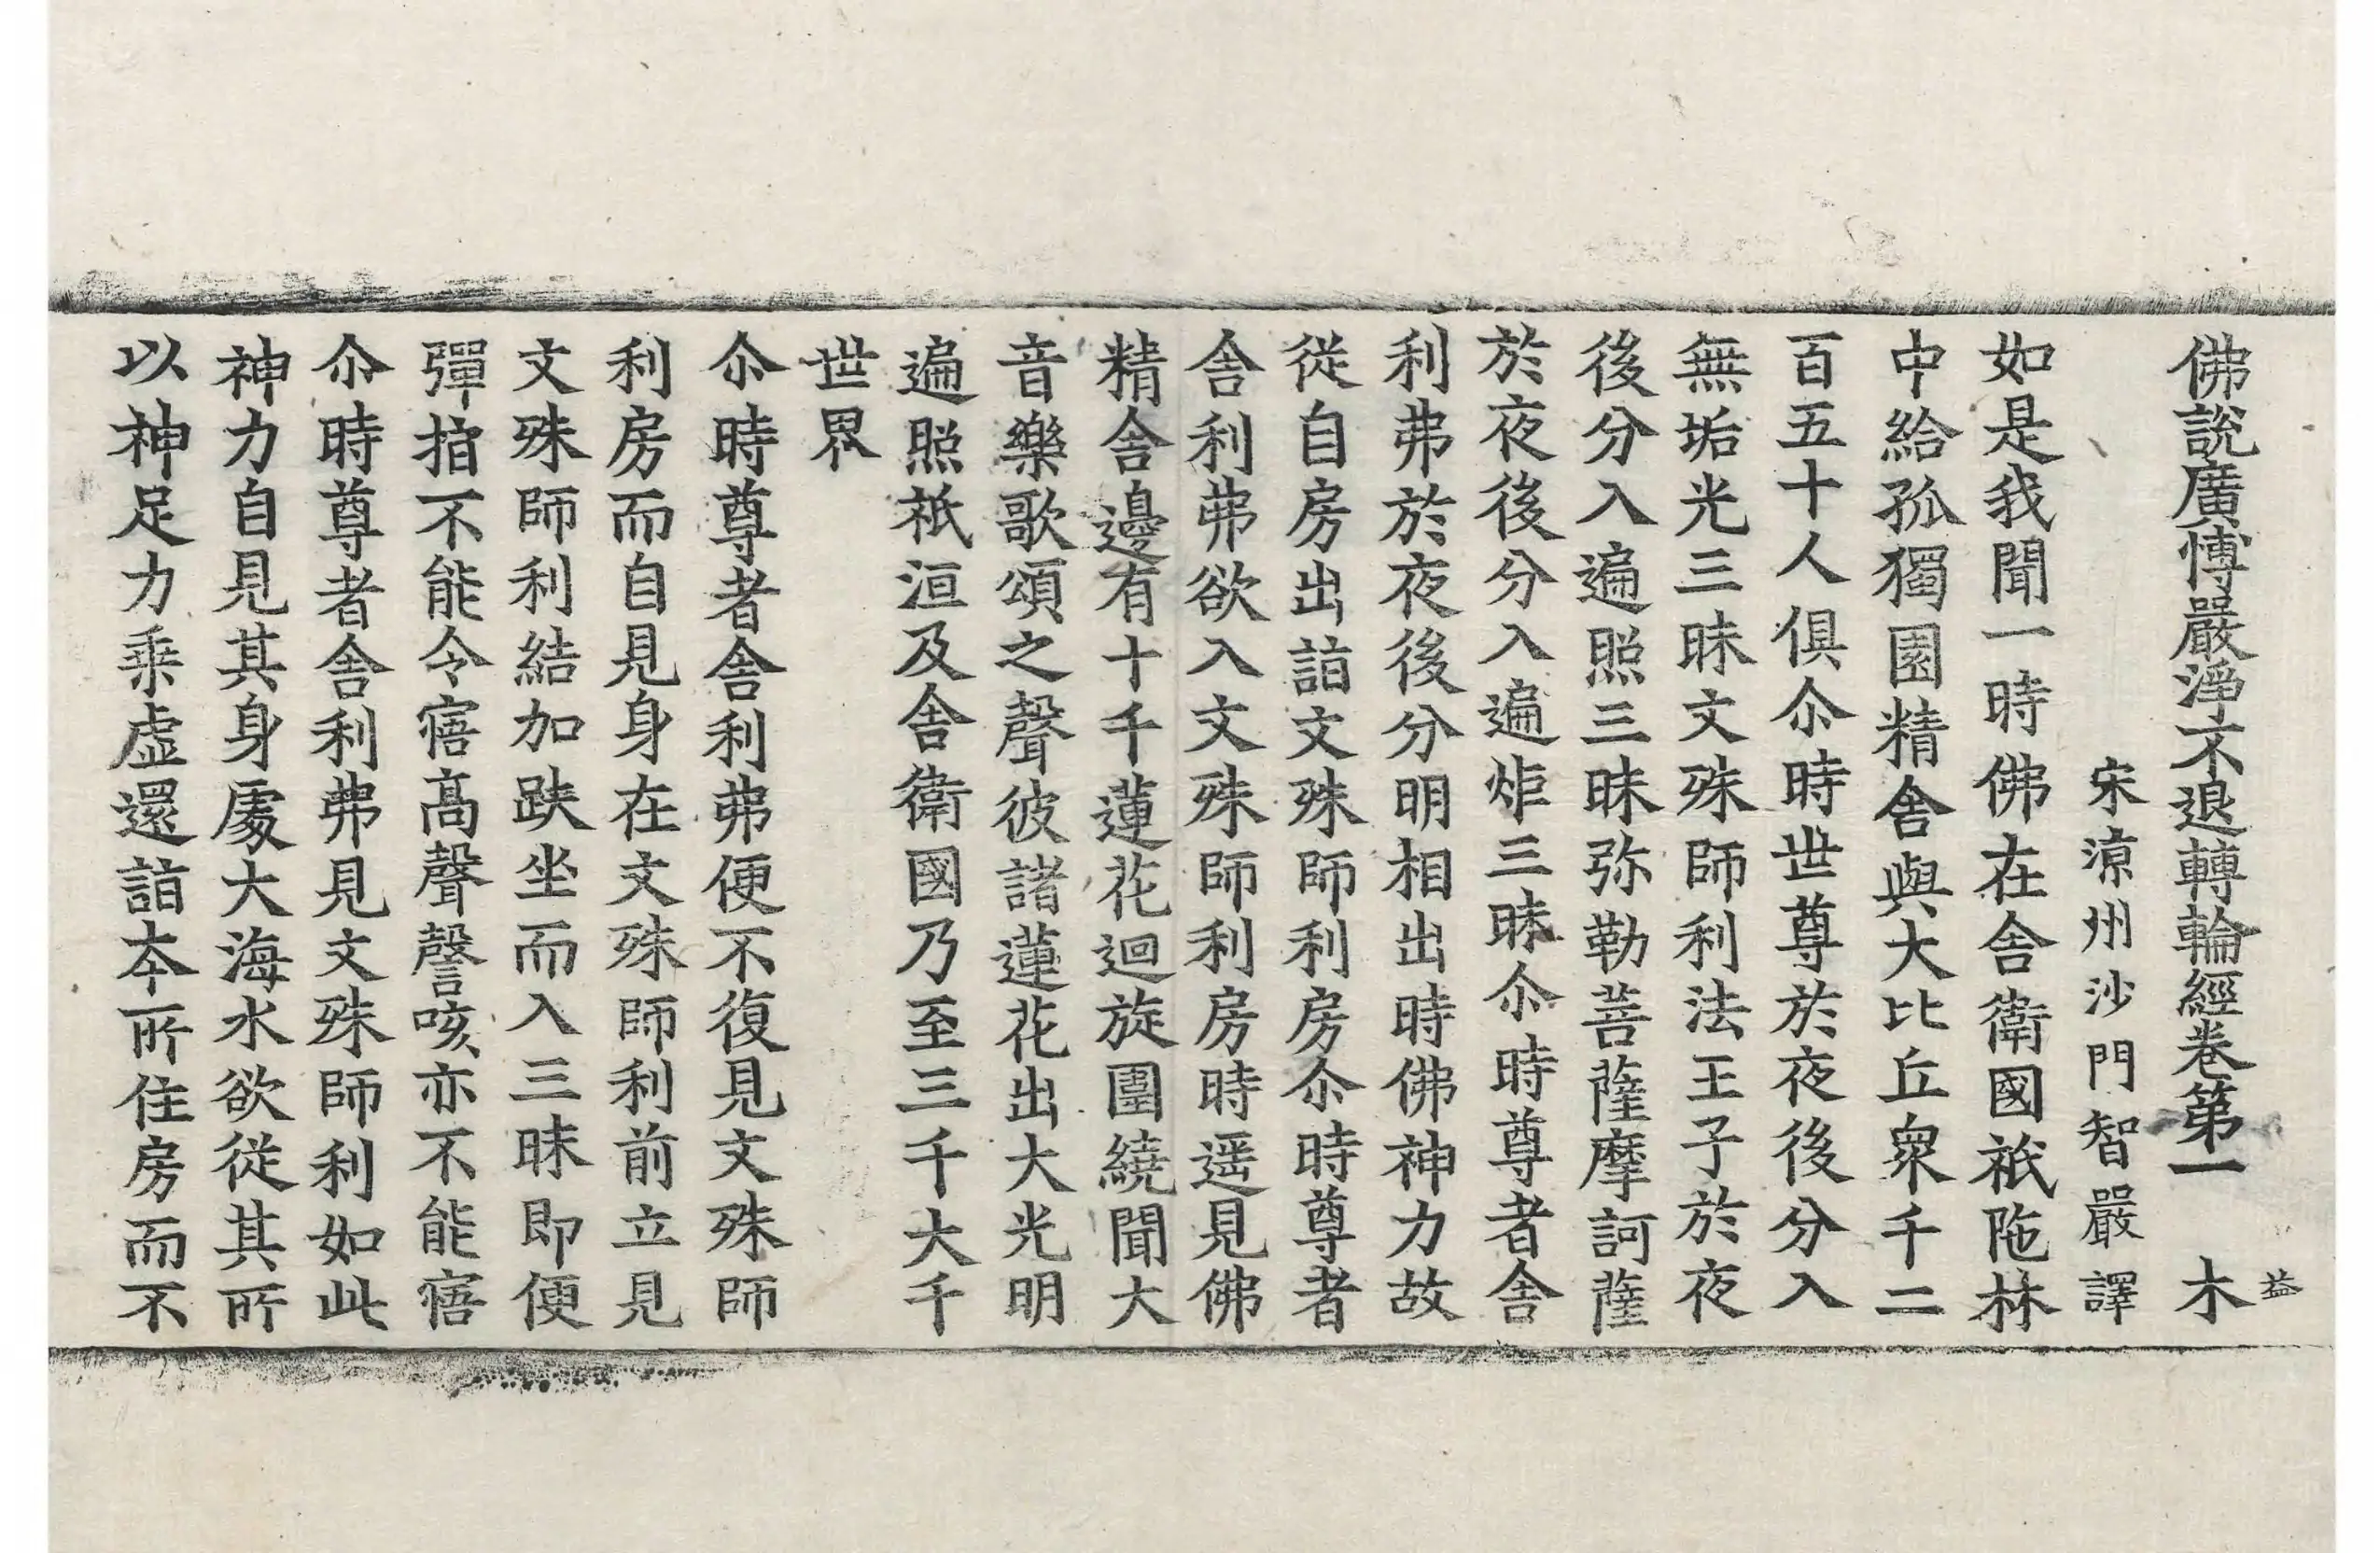 益
佛說廣博嚴淨不退轉輪經卷第一　木
宋涼州沙門智嚴譯
如是我聞一時佛在舍衛國祇陁林
中給孤獨園精舍與大比丘衆千二
百五十人俱尒時世尊於夜後分入
無垢光三昧文殊師利法王子於夜
後分入遍照三昧弥勒菩薩摩訶薩
於夜後分入遍炬三昧尒時尊者舍
利弗於夜後分明相出時佛神力故
從自房出詣文殊師利房尒時尊者
舍利弗欲入文殊師利房時遥見佛
精舍邊有十千蓮花迴旋圍繞聞大
音樂歌頌之聲彼諸蓮花出大光明
遍照祇洹及舍衛國乃至三千大千
世界
尒時尊者舍利弗便不復見文殊師
利房而自見身在文殊師利前立見
文殊師利結加趺坐而入三昧即便
彈指不能令寤高聲謦咳亦不能寤
尒時尊者舍利弗見文殊師利如此
神力自見其身處大海水欲從其所
以神足力乘虛還詣本所住房而不